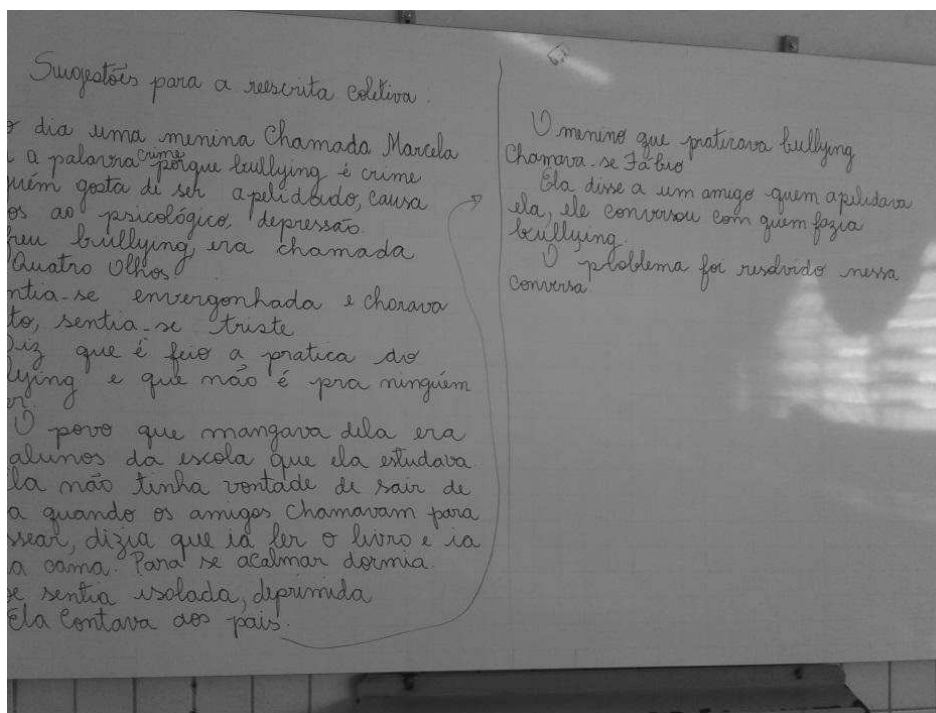 Sugestões para a reescrita coletiva.
dia uma menina Chamada Marcela
a palavra crime porque bullying é crime
guém gosta de ser apelidado, causa
os ao psicológico, depressão.
freu bullying, era chamada
Quatro Olhos
ntia-se envergonhada e chorava
to, sentia-se triste
Diz que é feio a pratica do
lying e que não é pra ninguém
er.
O povo que mangava dela era
alunos da escola que ela estudava.
la não tinha vontade de sair de
a quando os amigos chamavam para
ssear, dizia que ia ler o livro e ia
a cama. Para se acalmar dormia.
se sentia isolada, deprimida
Ela Contava aos pais.
O menino que praticava bullying
Chamava-se Fábio
Ela disse a um amigo quem apelidava
ela, ele conversou com quem fazia
bullying.
O ploblema foi resolvido nessa
conversa.